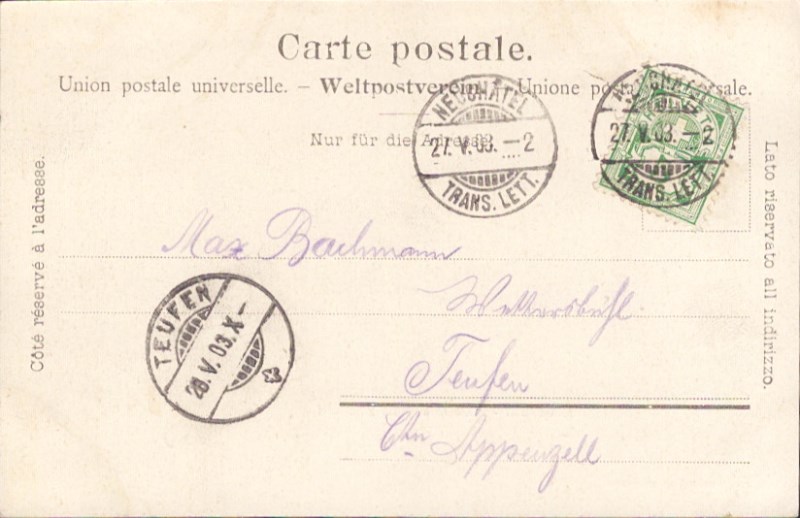 Carte postale.
Union postale universelle. – Weltpostverein. – Unione postale universale.
Nur für die Adresse.
NEUCHATEL
27.V.03.–2
TRANS. LETT.
NEUCHATEL
27.V.03.–2
TRANS. LETT.
Côté réservé à l'adresse.
Lato riservato all indirizzo.
Max Bachmann
Wettersbühl
Teufen
Ctn Appenzell
TEUFEN
28.V.03.X–